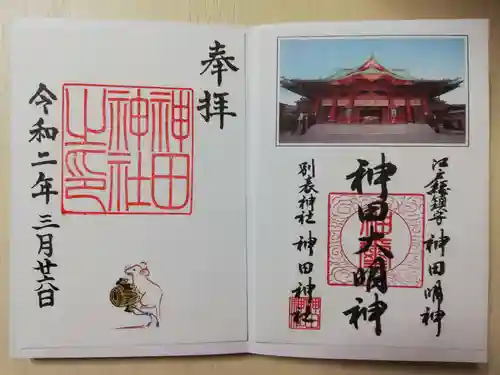 江戸総鎮守 神田明神
神田大明神
別表神社 神田神社
奉拝
神田
神社
之印
令和二年三月廿六日